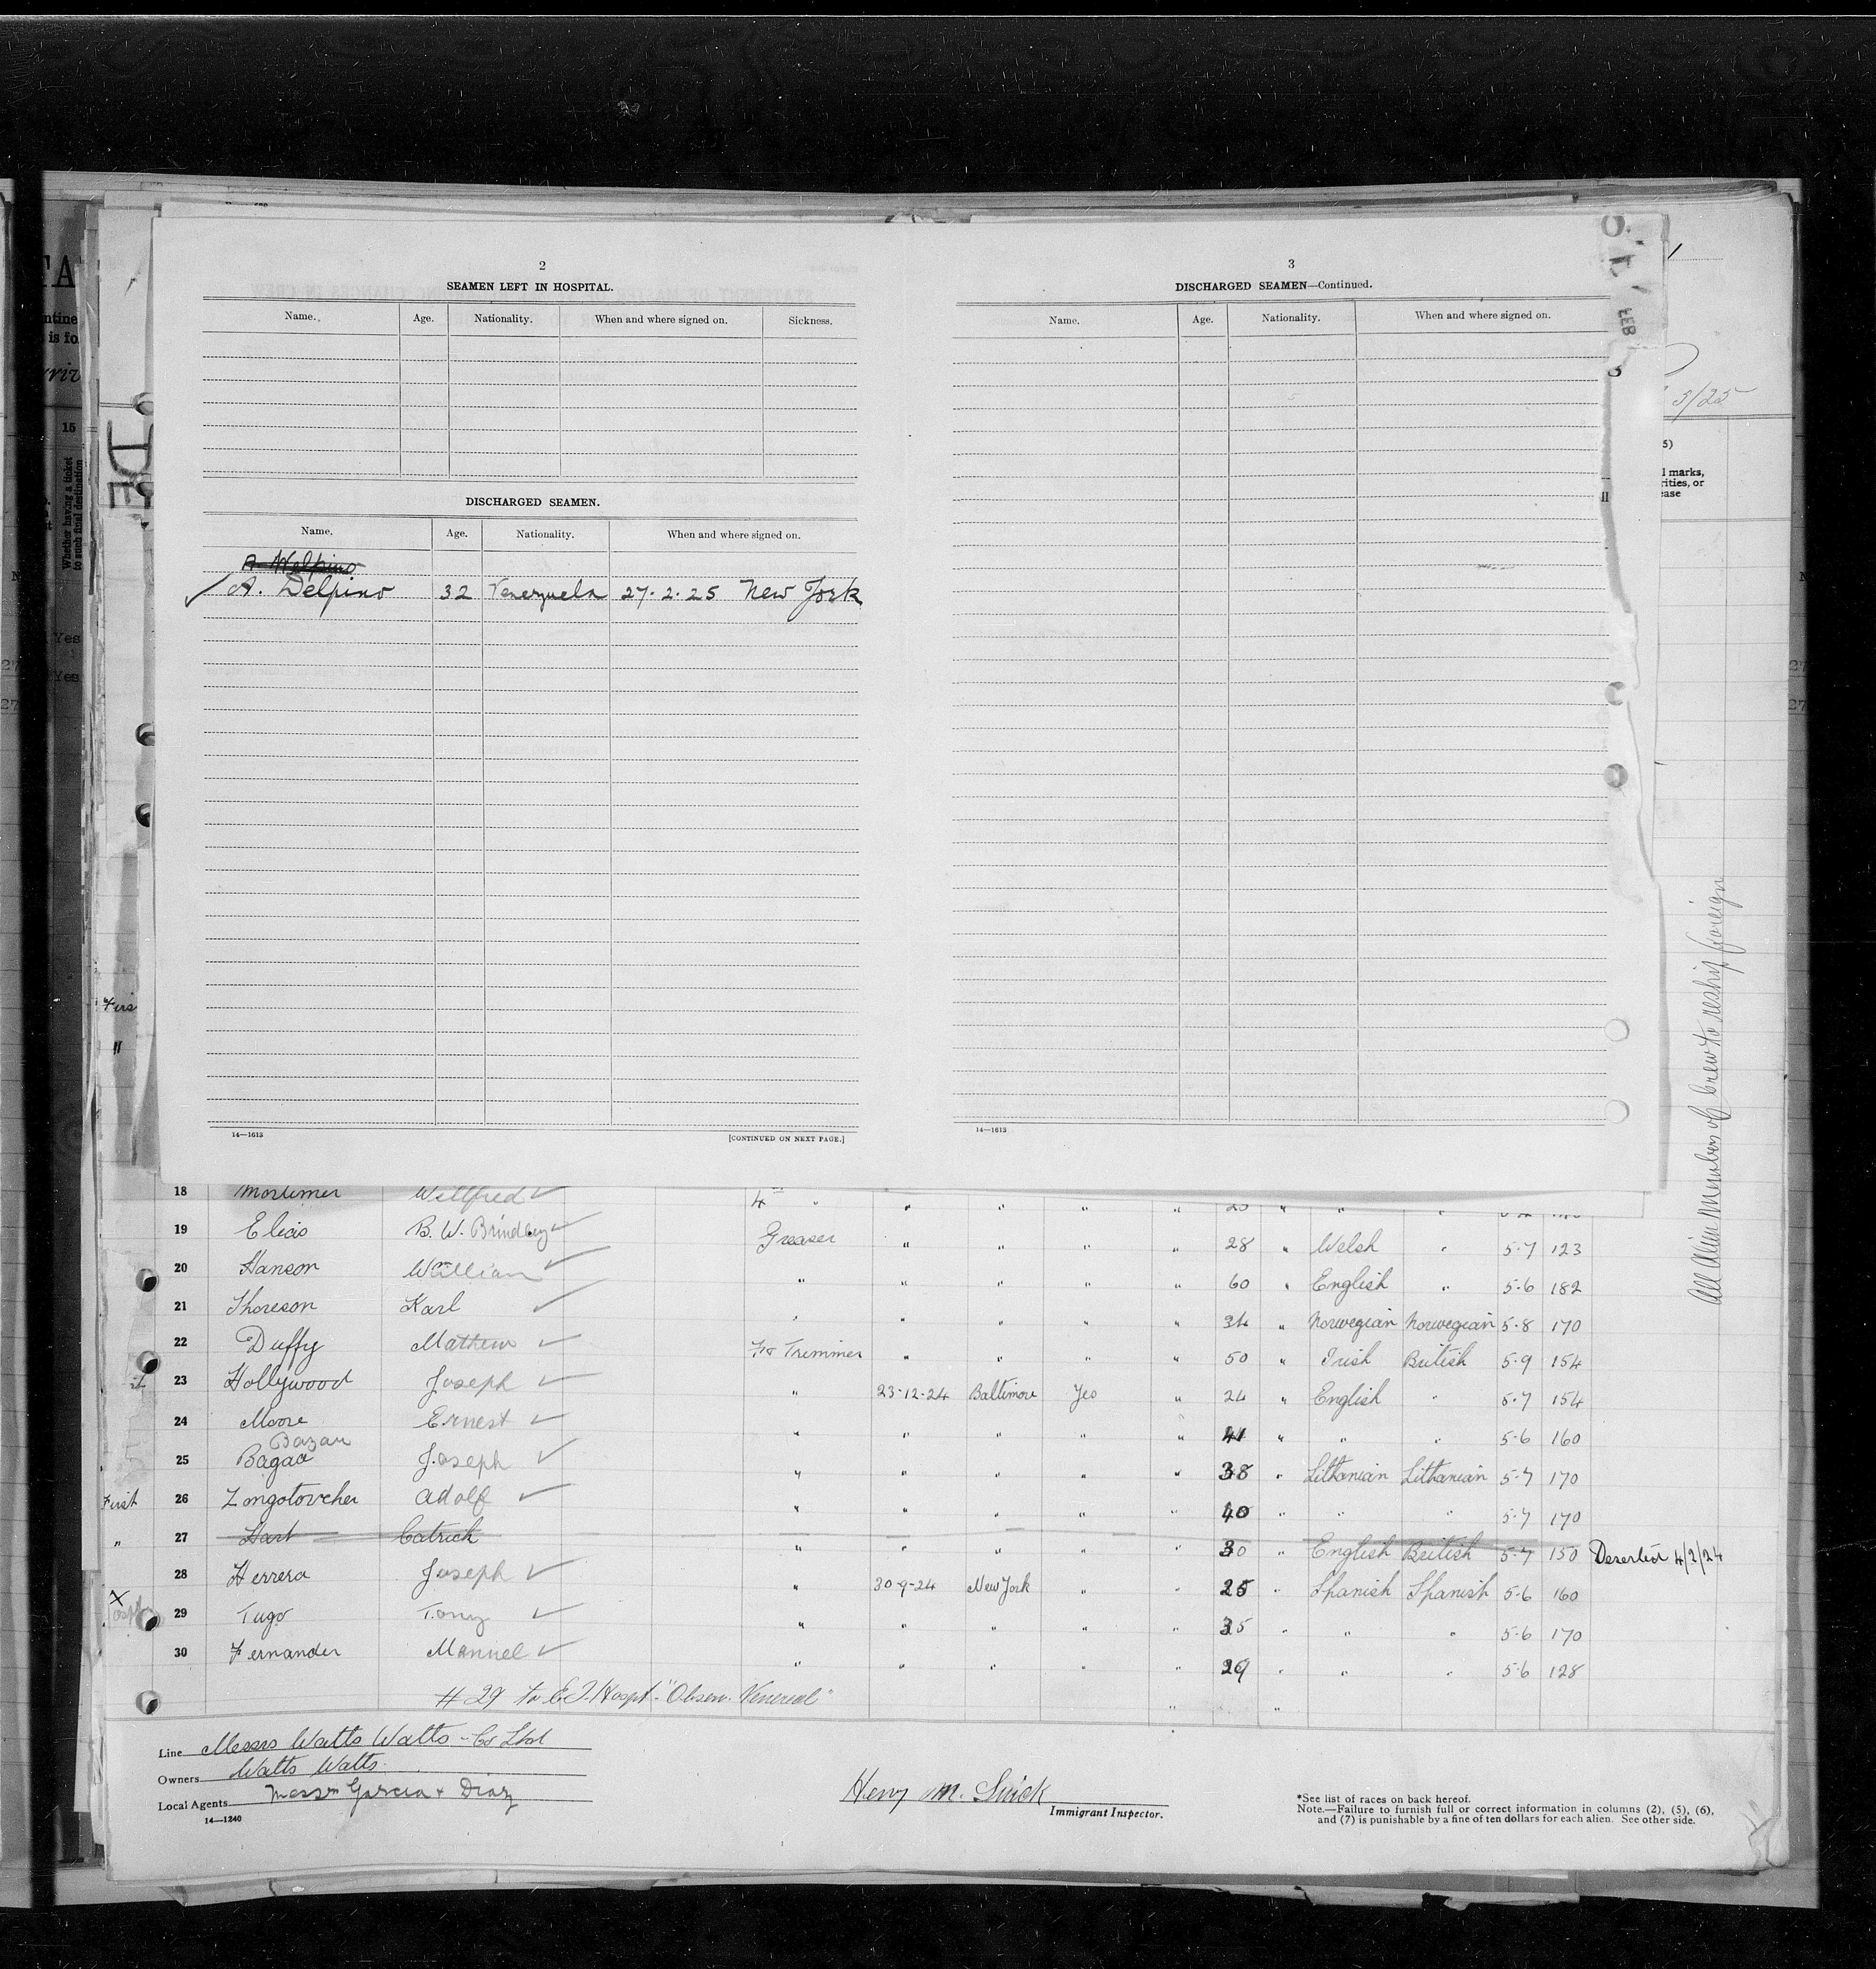 2
SEAMEN LEFT IN HOSPITAL.
Name. Age. Nationality. When and where signed on. Sickness.
DISCHARGED SEAMEN.
Name. Age. Nationality. When and where signed on.
A. Delpino 32 Venezuela 27.2.25 New York
14—1613 [CONTINUED ON NEXT PAGE.]
3
DISCHARGED SEAMEN—Continued.
Name. Age. Nationality. When and where signed on.
14—1613
5/25
15
Whether having a ticket to such final destination
Yes
Yes
All Alien Members of Crew to reship foreign
18 Mortimer Willfred 4th "
19 Elias B. W. Brindley Greaser " " " " 28 " Welsh " 5-7 123
20 Hanson William " " " " " 60 " English " 5-6 182
21 Thoreson Karl " " " " " 34 " Norwegian Norwegian 5-8 170
22 Duffy Mathew Fr Trimmer " " " " 50 " Irish British 5-9 154
23 Hollywood Joseph " 23-12-24 Baltimore Yes " 24 " English " 5-7 154
24 Moore Ernest " " " " " 41 " " " 5-6 160
Bazan
25 Bagaa Joseph " " " " " 38 " Lithanian Lithanian 5-7 170
First 26 Zongotovcher Adolf " " " " " 40 " " " 5-7 170
" 27 Hart Catrick " " " " " 30 " English British 5-7 150 Deserted 4/2/24
28 Herrera Joseph " 30-9-24 New York " " 25 " Spanish Spanish 5-6 160
X 29 Tugo Tony " " " " " 35 " " " 5-6 170
30 Fernander Manuel " " " " " 29 " " " 5-6 128
# 29 to E.I. Hospt. "Observ. Venereal"
Line Messrs Watts Watts - Co Ltd
Owners Watts Watts.
Local Agents Messrs Garcia + Diaz
14—1240
Henry M. Snick
Immigrant Inspector.
*See list of races on back hereof.
Note.—Failure to furnish full or correct information in columns (2), (5), (6),
and (7) is punishable by a fine of ten dollars for each alien. See other side.